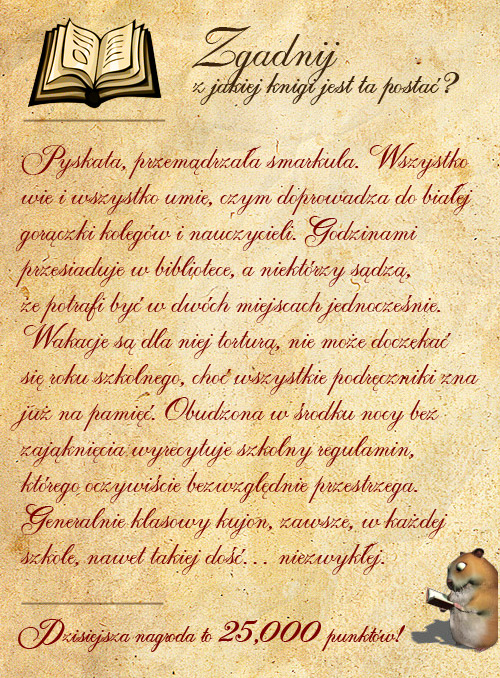 Zgadnij
z jakiej knigi jest ta postać?
Pyskata, przemądrzała smarkula. Wszystko
wie i wszystko umie, czym doprowadza do białej
gorączki kolegów i nauczycieli. Godzinami
przesiaduje w bibliotece, a niektórzy sądzą,
że potrafi być w dwóch miejscach jednocześnie.
Wakacje są dla niej torturą, nie może doczekać
się roku szkolnego, choć wszystkie podręczniki zna
już na pamięć. Obudzona w środku nocy bez
zająknięcia wyrecytuje szkolny regulamin,
którego oczywiście bezwzględnie przestrzega.
Generalnie klasowy kujon, zawsze, w każdej
szkole, nawet takiej dość... niezwykłej.
Dzisiejsza nagroda to 25,000 punktów!